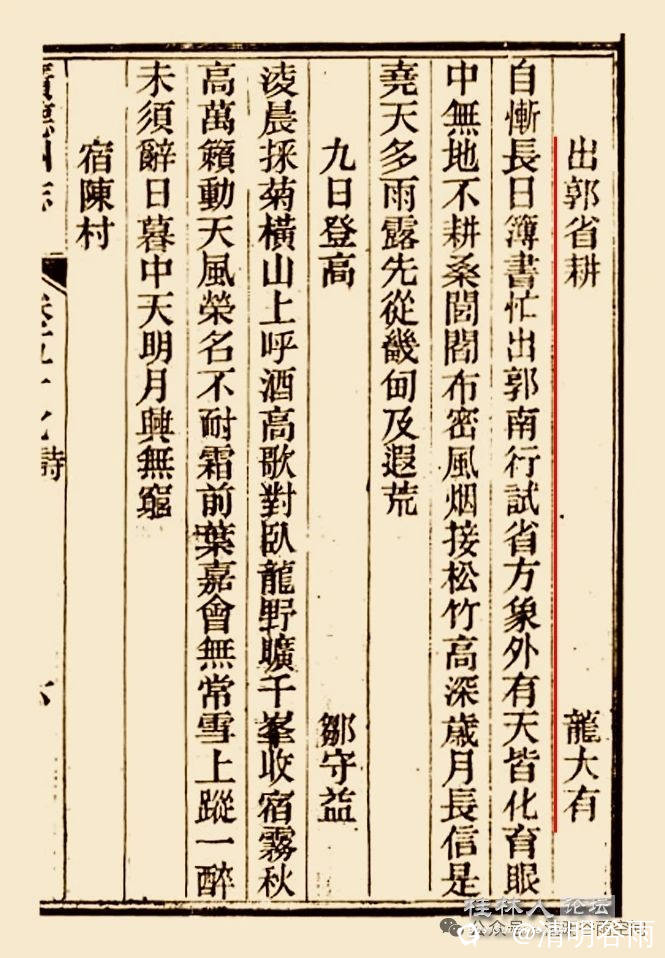 出郭省耕　龍大有
自慚長日簿書忙出郭南行試省方象外有天皆化育眼
中無地不耕桑閭閻布密風烟接松竹高深歲月長信是
堯天多雨露先從畿甸及遐荒
九日登高　鄒守益
淩晨採菊橫山上呼酒高歌對臥龍野曠千峯收宿霧秋
高萬籟動天風榮名不耐霜前葉嘉會無常雪上蹤一醉
未須辭日暮中天明月興無窮
宿陳村
廣德州志
詩
桂林人论坛
公众号
@清明谷雨